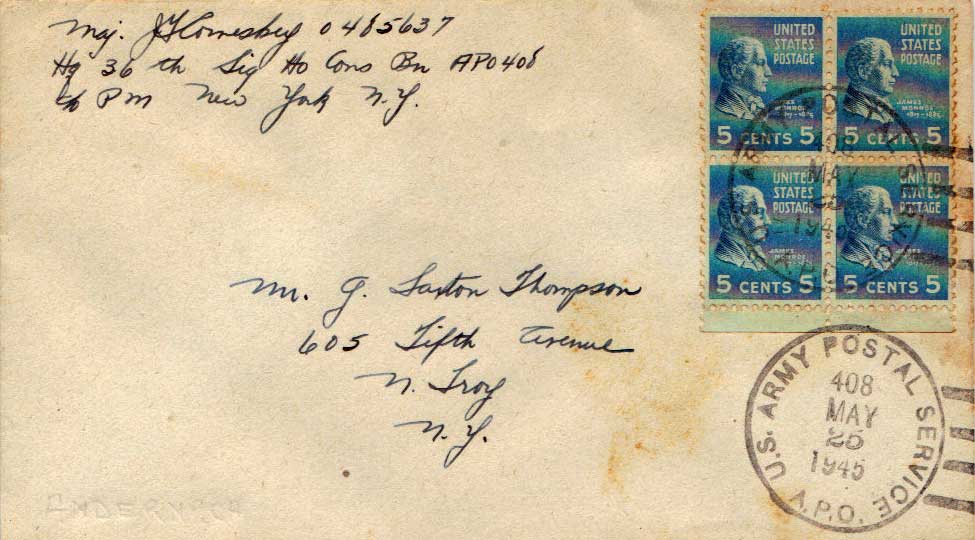 Maj. 0485637
Hq 36 th Sig Hv Cons Bn APO 408
c/o P M New York N.Y.
Mr. G. Saxton Thompson
605 Fifth Avenue
N. Troy
N.Y.
UNITED STATES POSTAGE
JAMES MONROE
1817-1825
5 CENTS 5
UNITED STATES POSTAGE
JAMES MONROE
1817-1825
5 CENTS 5
UNITED STATES POSTAGE
JAMES MONROE
5 CENTS 5
UNITED STATES POSTAGE
JAMES MONROE
5 CENTS 5
U.S. ARMY POSTAL SERVICE
408
MAY
25
1945
A.P.O.
U.S. ARMY POSTAL SERVICE
408
MAY
25
1945
A.P.O.